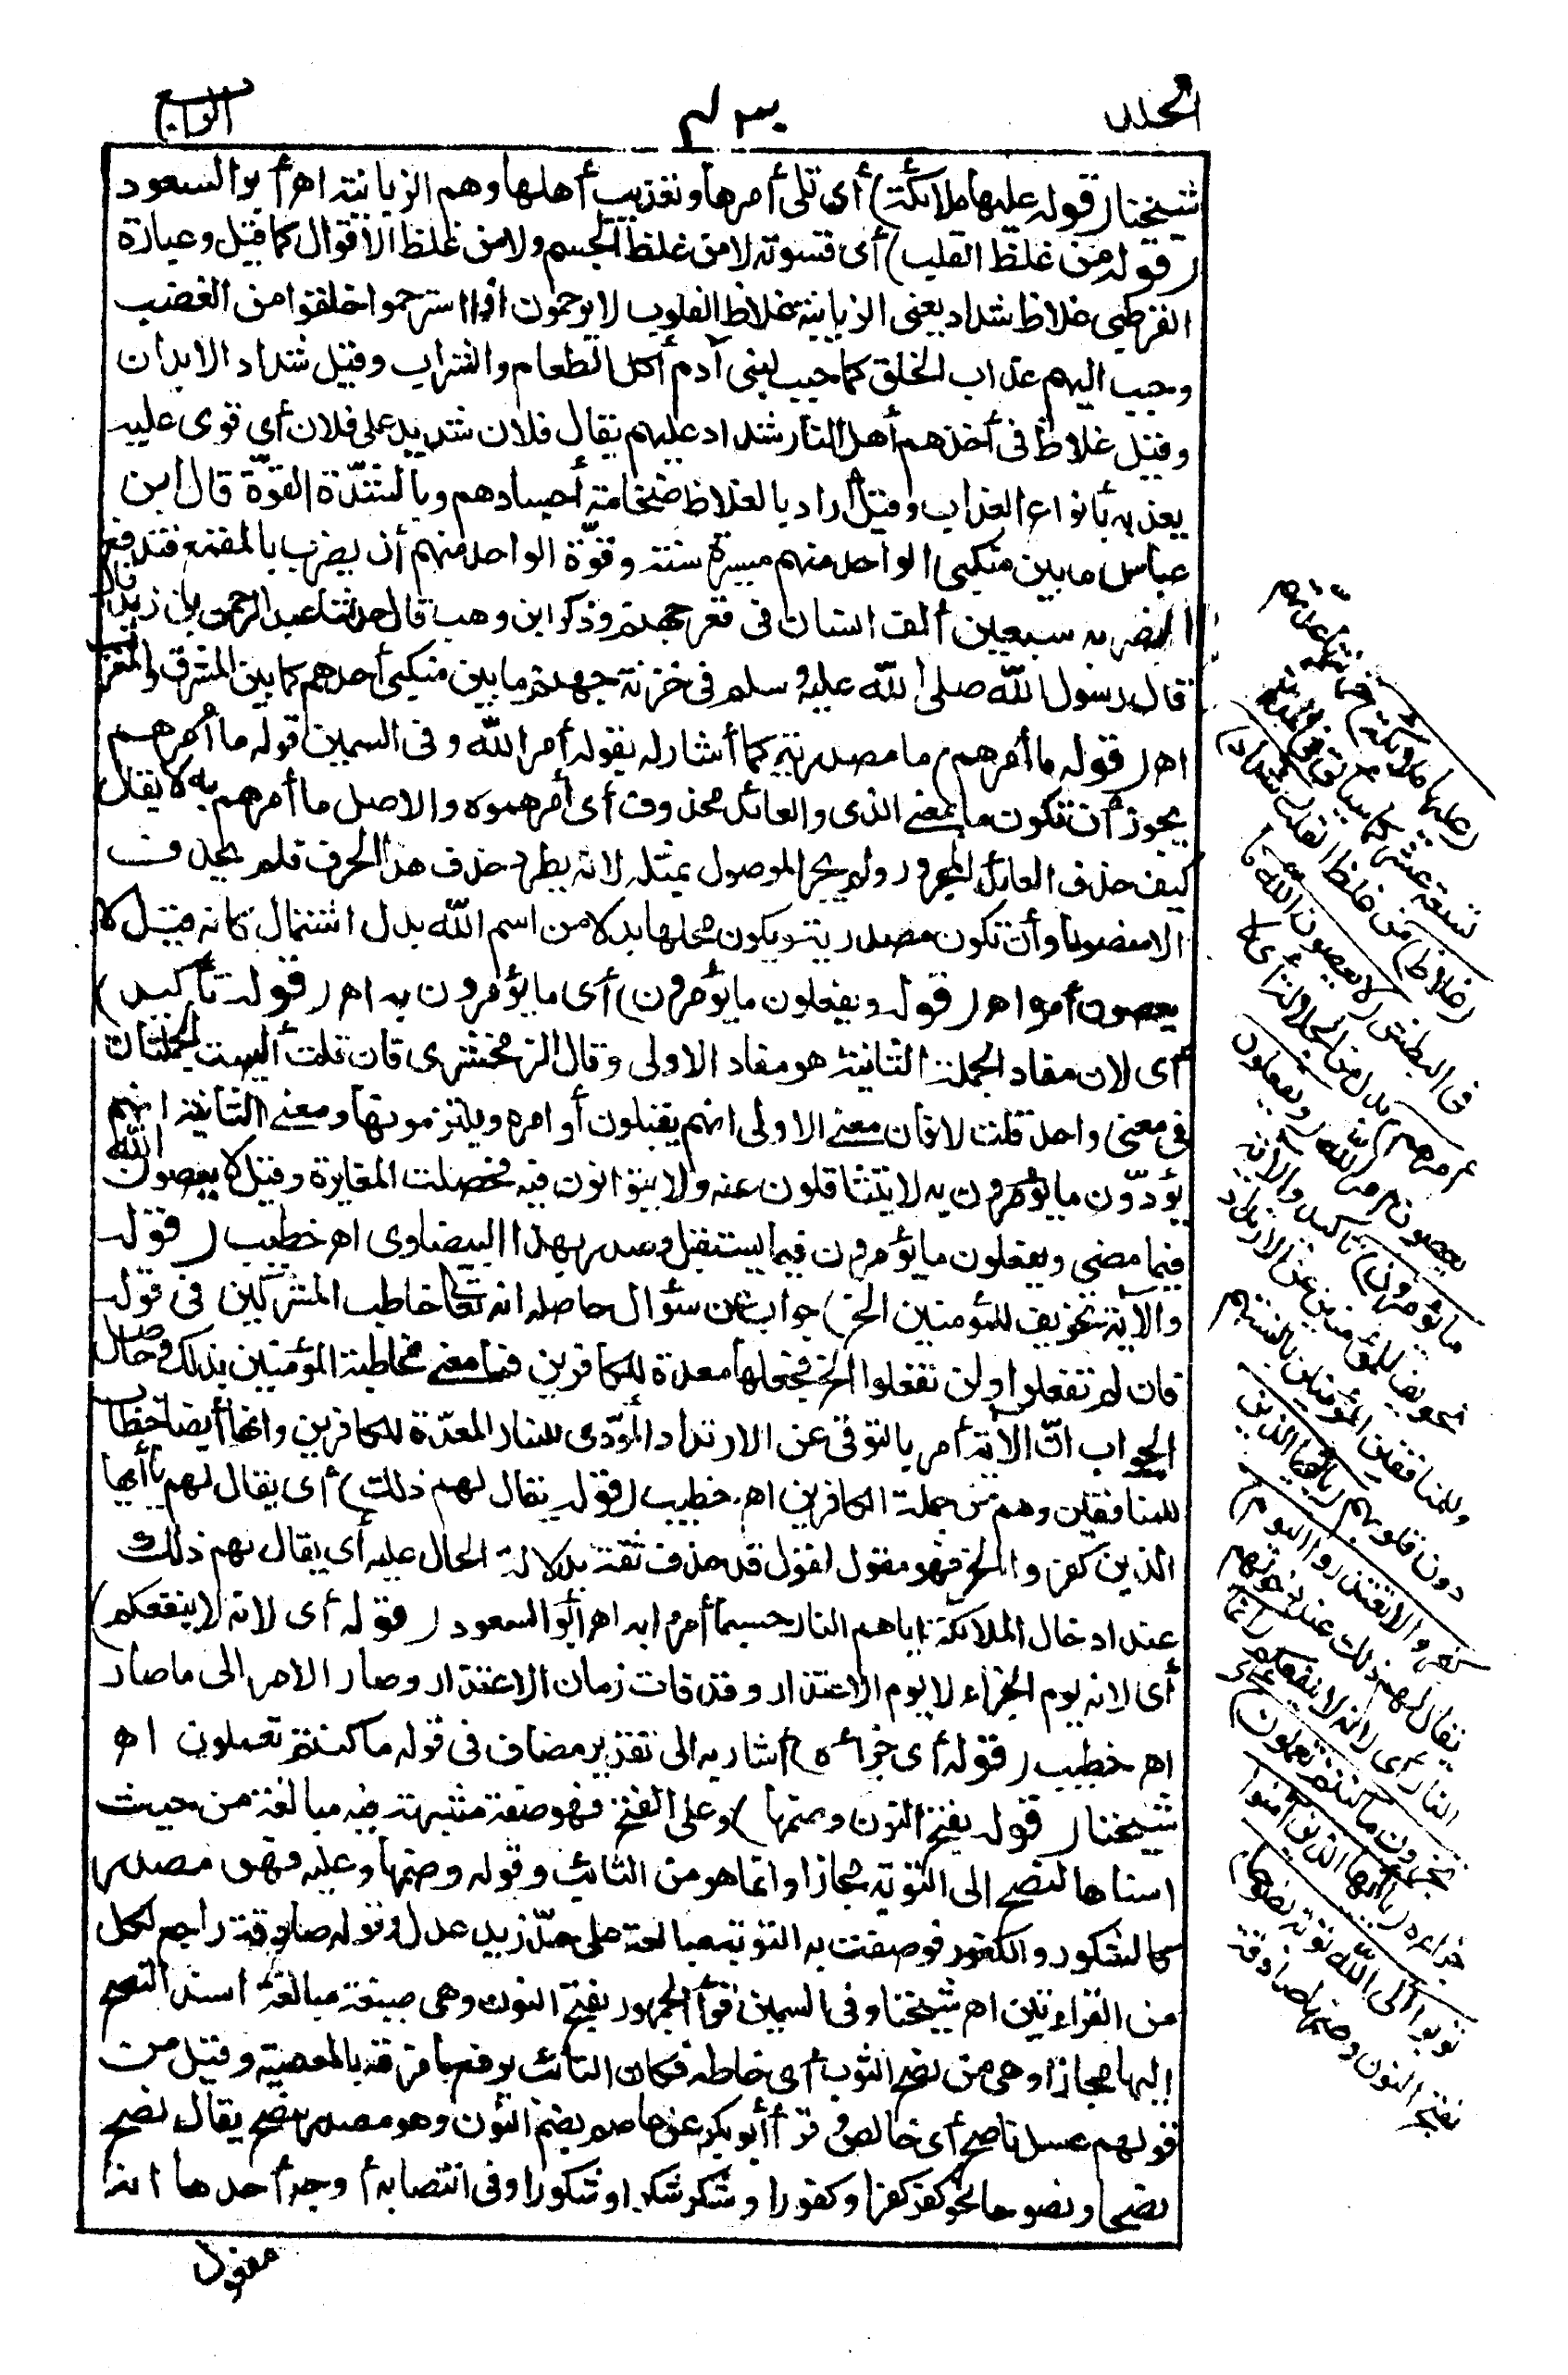 المجلد
الرابع
شيخنا (قوله عليها ملائكة) أي تلي أمرها وتعذيب أهلها وهم الزبانية اهـ أبو السعود
(قوله من غلظ القلب) أي قسوته لا من غلظ الجسم ولا من غلظ الأقوال كما قيل وعبارة
القرطبي غلاظ شداد يعني الزبانية غلاظ القلوب لا يرحمون اذا استرحموا خلقوا من الغضب
وحبب اليهم عذاب الخلق كما حبب لبني آدم أكل الطعام والشراب وقيل شداد الابدان
وقيل غلاظ في أخذهم أهل النار شداد عليهم يقال فلان شديد على فلان أي قوي عليه
يعذبه بأنواع العذاب وقيل أراد بالغلاظ ضخامة أجسادهم وبالشدّة القوّة قال ابن
عباس ما بين منكبي الواحد منهم مسيرة سنة وقوّة الواحد منهم أن يضرب بالمقمع فيدفع
بالضربة سبعين ألف انسان في قعر جهنم وذكر ابن وهب قال حدثنا عبد الرحمن بن زيد قال
قال رسول الله صلى الله عليه وسلم في خزنة جهنم ما بين منكبي أحدهم كما بين المشرق والمغرب
اهـ (قوله ما أمرهم) ما مصدرية كما أشار له بقوله أمر الله وفي السمين قوله ما أمرهم
يجوز أن تكون ما بمعنى الذي والعائد محذوف أي أمرهموه والاصل ما أمرهم به لا يقال
كيف حذف العائد المجرور ولم يجر الموصول بمثله لانه يطرد حذف هذا الحرف فلم يحذف
الا منصوبا وأن تكون مصدرية ويكون محلها بدلا من اسم الله بدل اشتمال كانه قيل لا
يعصون أمره اهـ (قوله ويفعلون ما يؤمرون) أي ما يؤمرون به اهـ (قوله تأكيد)
أي لان مفاد الجملة الثانية هو مفاد الاولى وقال الزمخشري فان قلت أليست الجملتان
في معنى واحد قلت لا فان معنى الاولى انهم يقبلون أوامره ويلتزمونها ومعنى الثانية انهم
يؤدّون ما يؤمرون به لا يتثاقلون عنه ولا يتوانون فيه فحصلت المغايرة وقيل لا يعصون الله
فيما مضى ويفعلون ما يؤمرون فيما يستقبل وصدر بهذا البيضاوي اهـ خطيب (قوله
والآية تخويف للمؤمنين الخ) جواب عن سؤال حاصله انه تعالى خاطب المشركين في قوله
فان لم تفعلوا ولن تفعلوا الخ فجعلها معدة للكافرين فما معنى مخاطبة المؤمنين بذلك وحاصل
الجواب انّ الآية أمر بالتوقي عن الارتداد المؤدّي للنار المعدّة للكافرين وانها أيضا خطاب
للمنافقين وهم من جملة الكافرين اهـ خطيب (قوله يقال لهم ذلك) أي يقال لهم يا أيها
الذين كفروا الخ فهو مقول لقول قد حذف ثقة بدلالة الحال عليه أي يقال لهم ذلك
عند ادخال الملائكة اياهم النار حسبما أمروا به اهـ أبو السعود (قوله أي لانه لا ينفعكم)
أي لانه يوم الجزاء لا يوم الاعتذار وقد فات زمان الاعتذار وصار الامر الى ما صار
اهـ خطيب (قوله أي جزاءه) أشار به الى تقدير مضاف في قوله ما كنتم تعملون اهـ
شيخنا (قوله بفتح النون وضمها) وعلى الفتح فهو صفة مشبهة فيه مبالغة من حيث
اسناد النصح الى التوبة مجازا وانما هو من التائب وقوله وضمها وعليه فهو مصدر
كالشكور والكفور فوصفت به التوبة مبالغة على حدّ زيد عدل وقوله صادقة راجع لكل
من القراءتين اهـ شيخنا وفي السمين قرأ الجمهور بفتح النون وهي صيغة مبالغة اسند النصح
إليها مجازا وهي من نصح الثوب أي خاطه فكان التائب يرقع ما خرقه بالمعصية وقيل من
قولهم عسل ناصح أي خالص وقرأ أبو بكر عن عاصم بضم النون وهو مصدر نصح يقال نصح
نصحا ونصوحا نحو كفر كفرا وكفورا وشكر شكرا وشكورا وفي انتصابه أوجه أحدها انه
مفعول
(عليها ملائكة) خزنتها عدّتهم
تسعة عشر كما سيأتي في المدثر
(غلاظ) من غلظ القلب (شداد)
في البطش (لا يعصون الله ما
أمرهم) بدل من الجلالة أي لا
يعصون أمر الله (ويفعلون
ما يؤمرون) تأكيد والآية
تخويف للمؤمنين عن الارتداد
وللمنافقين المؤمنين بألسنتهم
دون قلوبهم (يا أيها الذين
كفروا لا تعتذروا اليوم)
يقال لهم ذلك عند دخولهم
النار أي لانه لا ينفعكم (انما
تجزون ما كنتم تعملون) أي
جزاءه (يا أيها الذين آمنوا
توبوا الى الله توبة نصوحا)
بفتح النون وضمها صادقة